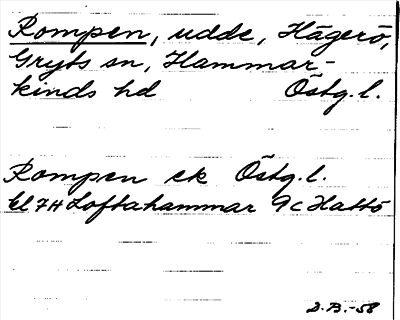 Rompen, udde, Hägerö,
Gryts sn, Hammar-
kinds hd Östg. l.
Rompen ek Östg. l.
bl 7H Loftahammar 9c Hattö
D.B.-58